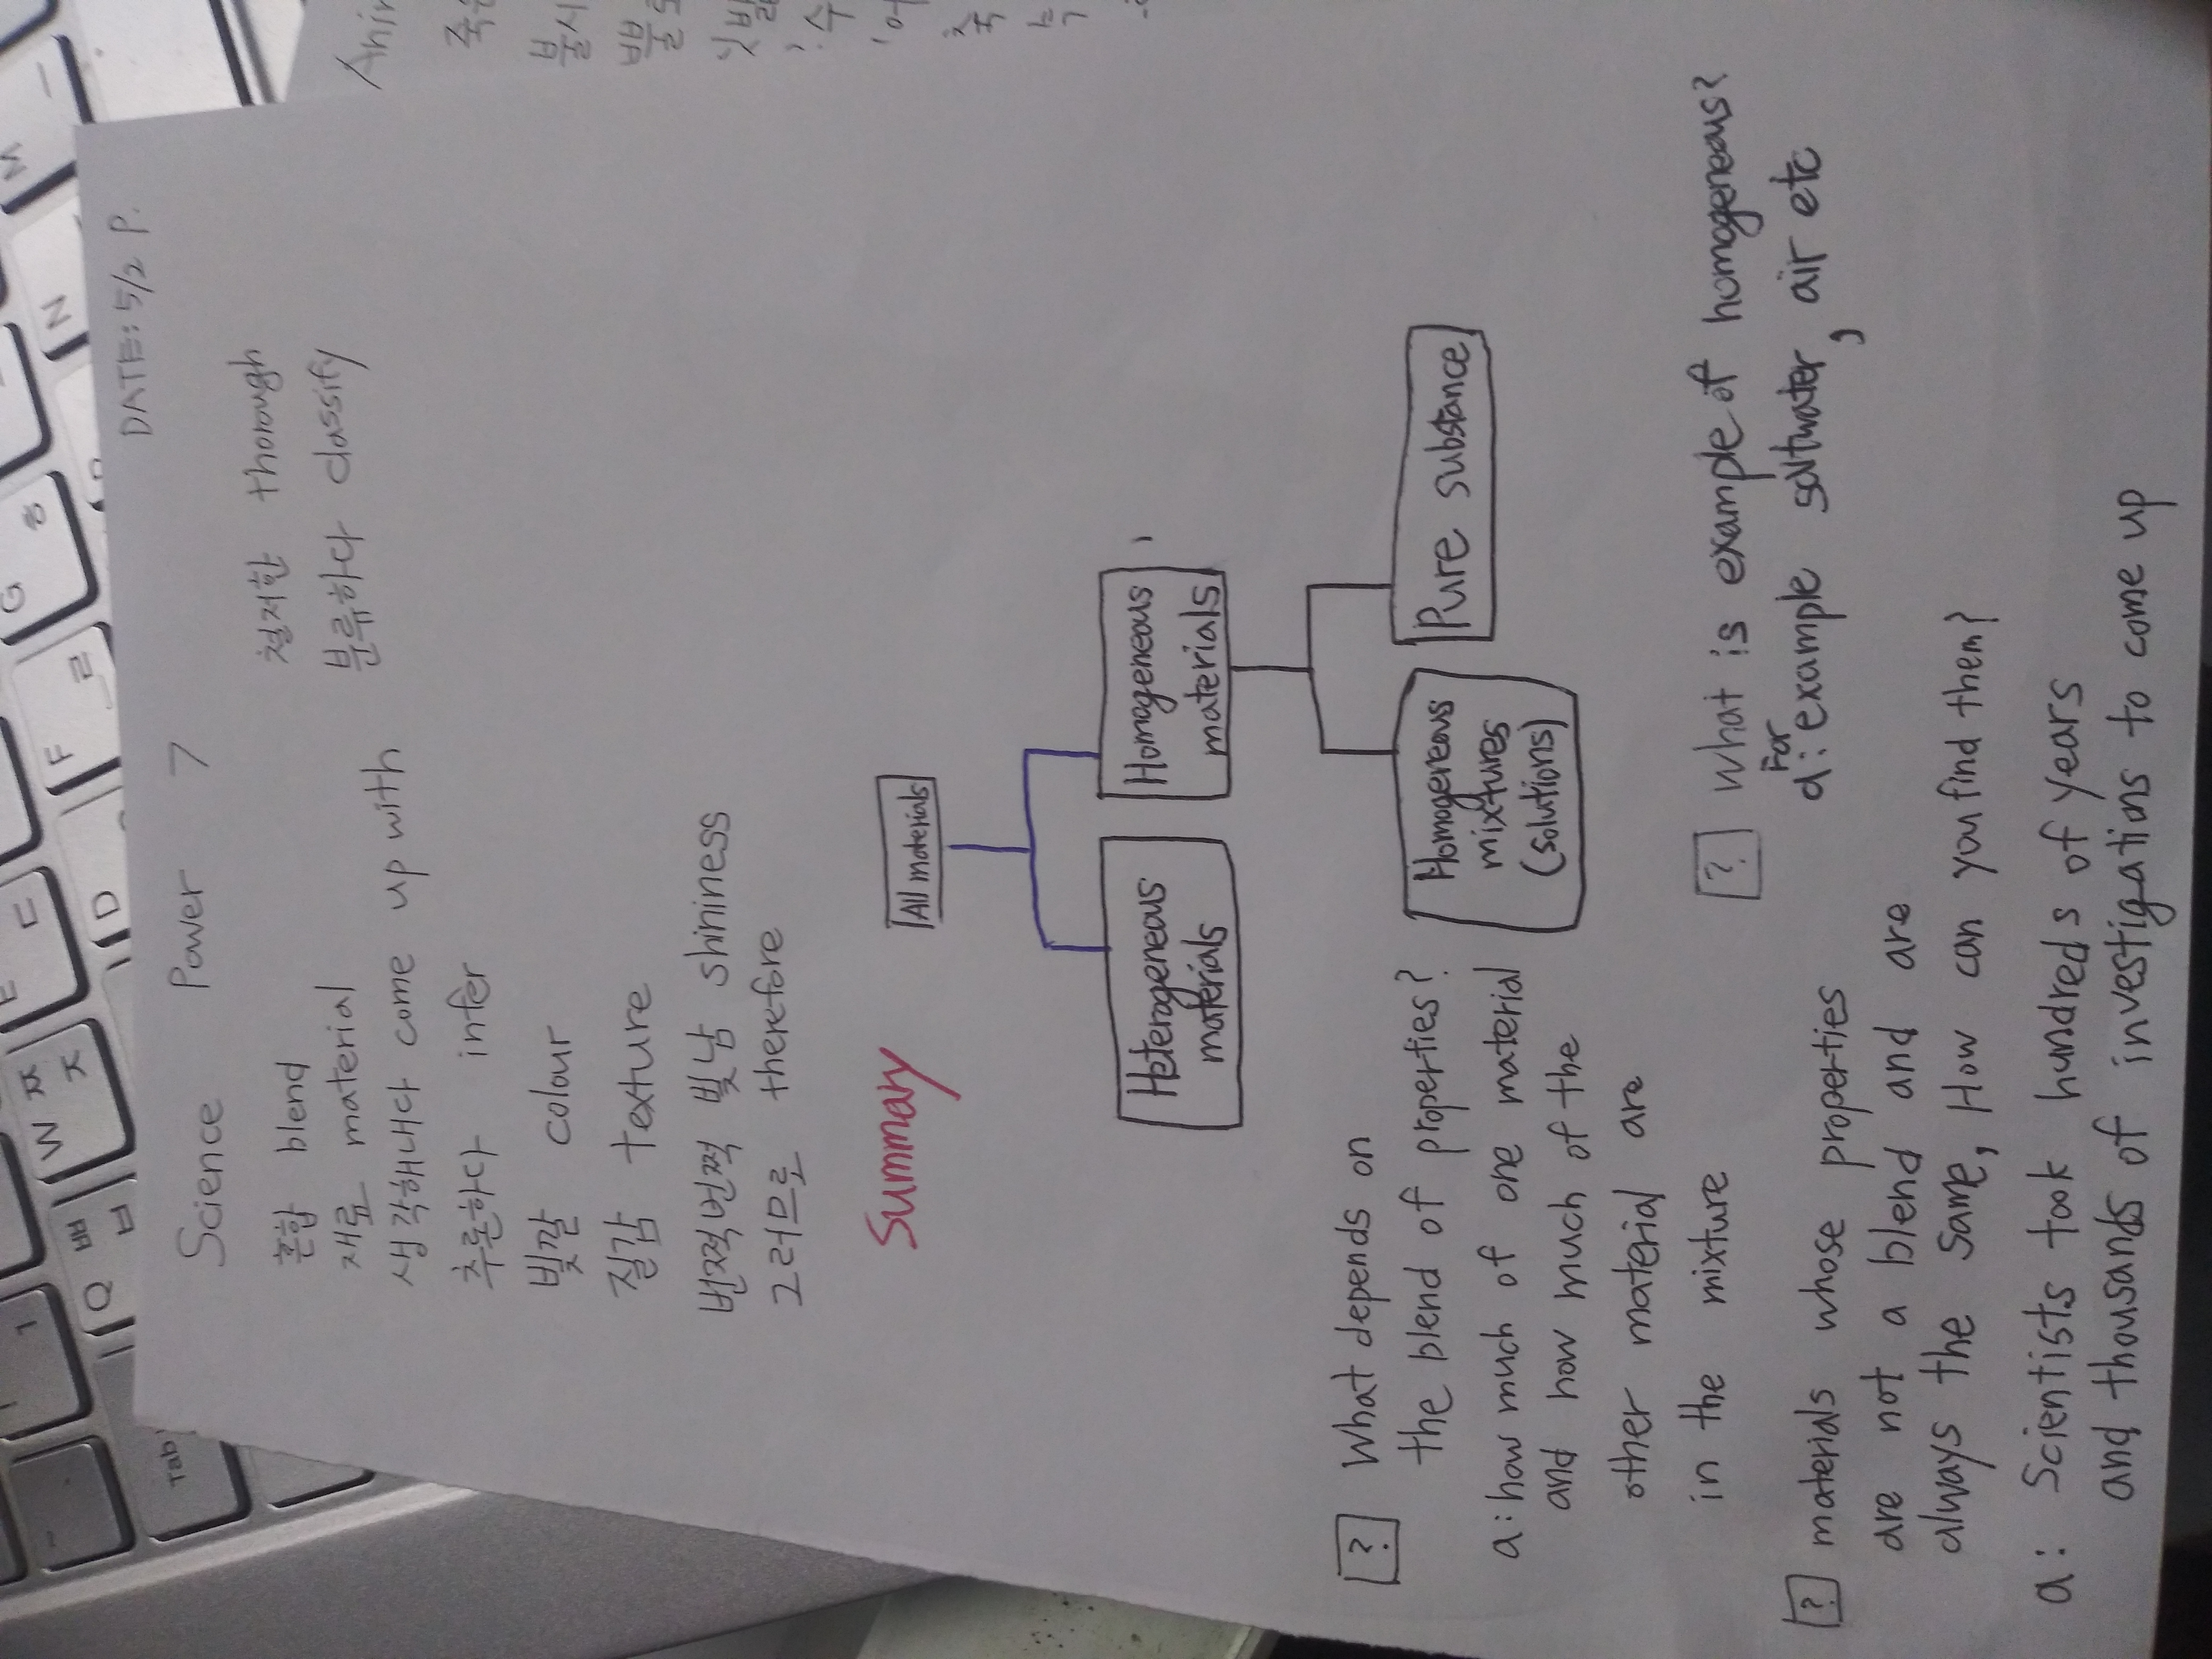 DATE: 5/2 P.
Science Power 7
혼합 blend
재료 material
생각해내다 come up with
추론하다 infer
빛깔 colour
질감 texture
번쩍번쩍 빛남 shininess
그러므로 therefore
철저한 thorough
분류하다 classify
Summary
All materials
Heterogeneous
materials
Homogeneous
materials
Homogereous
mixtures
(solutions)
Pure substance
? What depends on
the blend of properties?
a: how much of one material
and how much of the
other material are
in the mixture
? What is example of homogeneous?
For
a: example saltwater, air etc
? materials whose properties
are not a blend and are
always the same, How can you find them?
a: Scientists took hundreds of years
and thousands of investigations to come up
Tab
Q ㅃ ㅂ
W ㅉ ㅈ
E ㄷ
D
F ㄹ
G ㅎ
N
M ㅡ
1